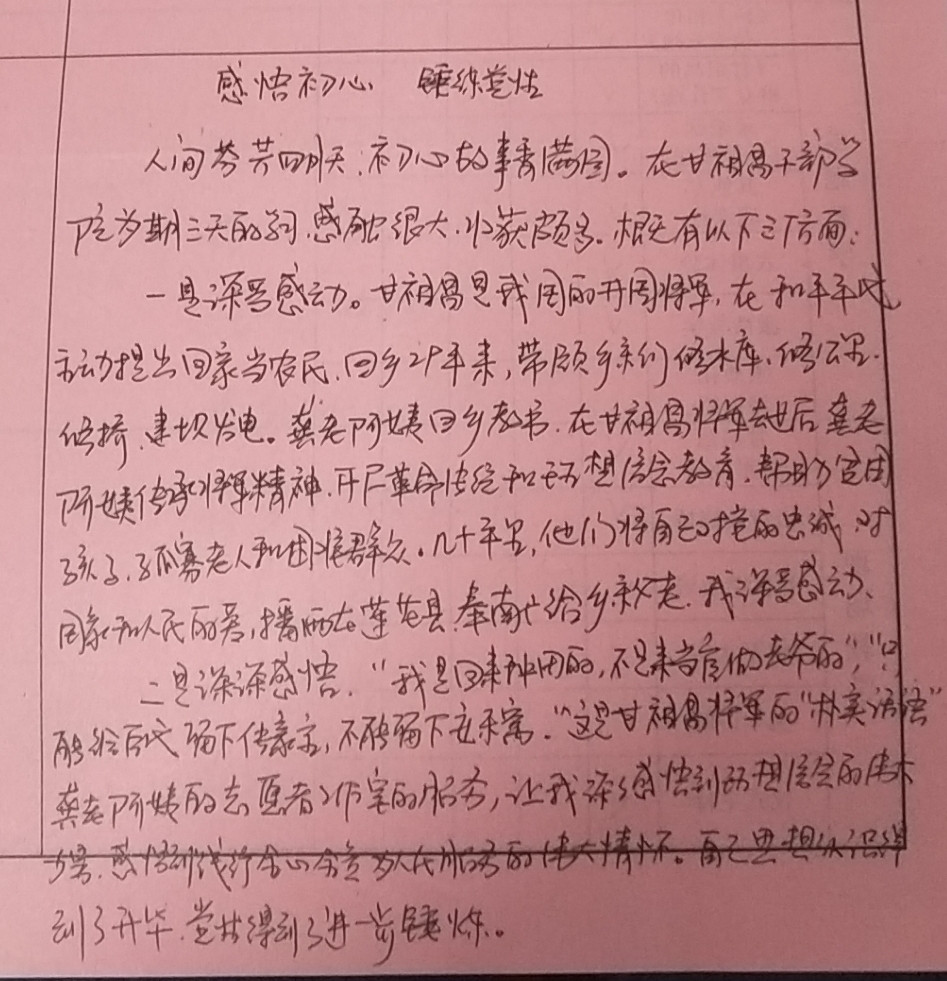 感悟初心 锤练党性
人间芬芳四月天,初心故事香满园。在甘祖昌干部学
院为期三天的学习,感触很大,收获颇多。概括有以下三个方面:
一是深受感动。甘祖昌是我国的开国将军,在和平年代
主动提出回家当农民,回乡29年来,带领乡亲们修水库、修公路、
修桥、建坝发电。龚老阿姨回乡教书,在甘祖昌将军去世后龚老
阿姨传承将军精神,开展革命传统和理想信念教育,帮助贫困
孩子、孤寡老人和困难群众。几十年里,他们将自己对党的忠诚、对
国家和人民的爱,播洒在莲花县,奉献给乡亲父老,我深受感动、
二是深深感悟,“我是回来种田的,不是来当官做老爷的”,“只
能给后代留下传家宝,不能留下安乐窝。”这是甘祖昌将军的“朴实话语”
龚老阿姨的志愿者工作室的服务,让我深感悟到理想信念的伟大
力量,感悟到践行全心全意为人民服务的伟大情怀。自己思想认识得
到了升华,党性得到了进一步锤炼。